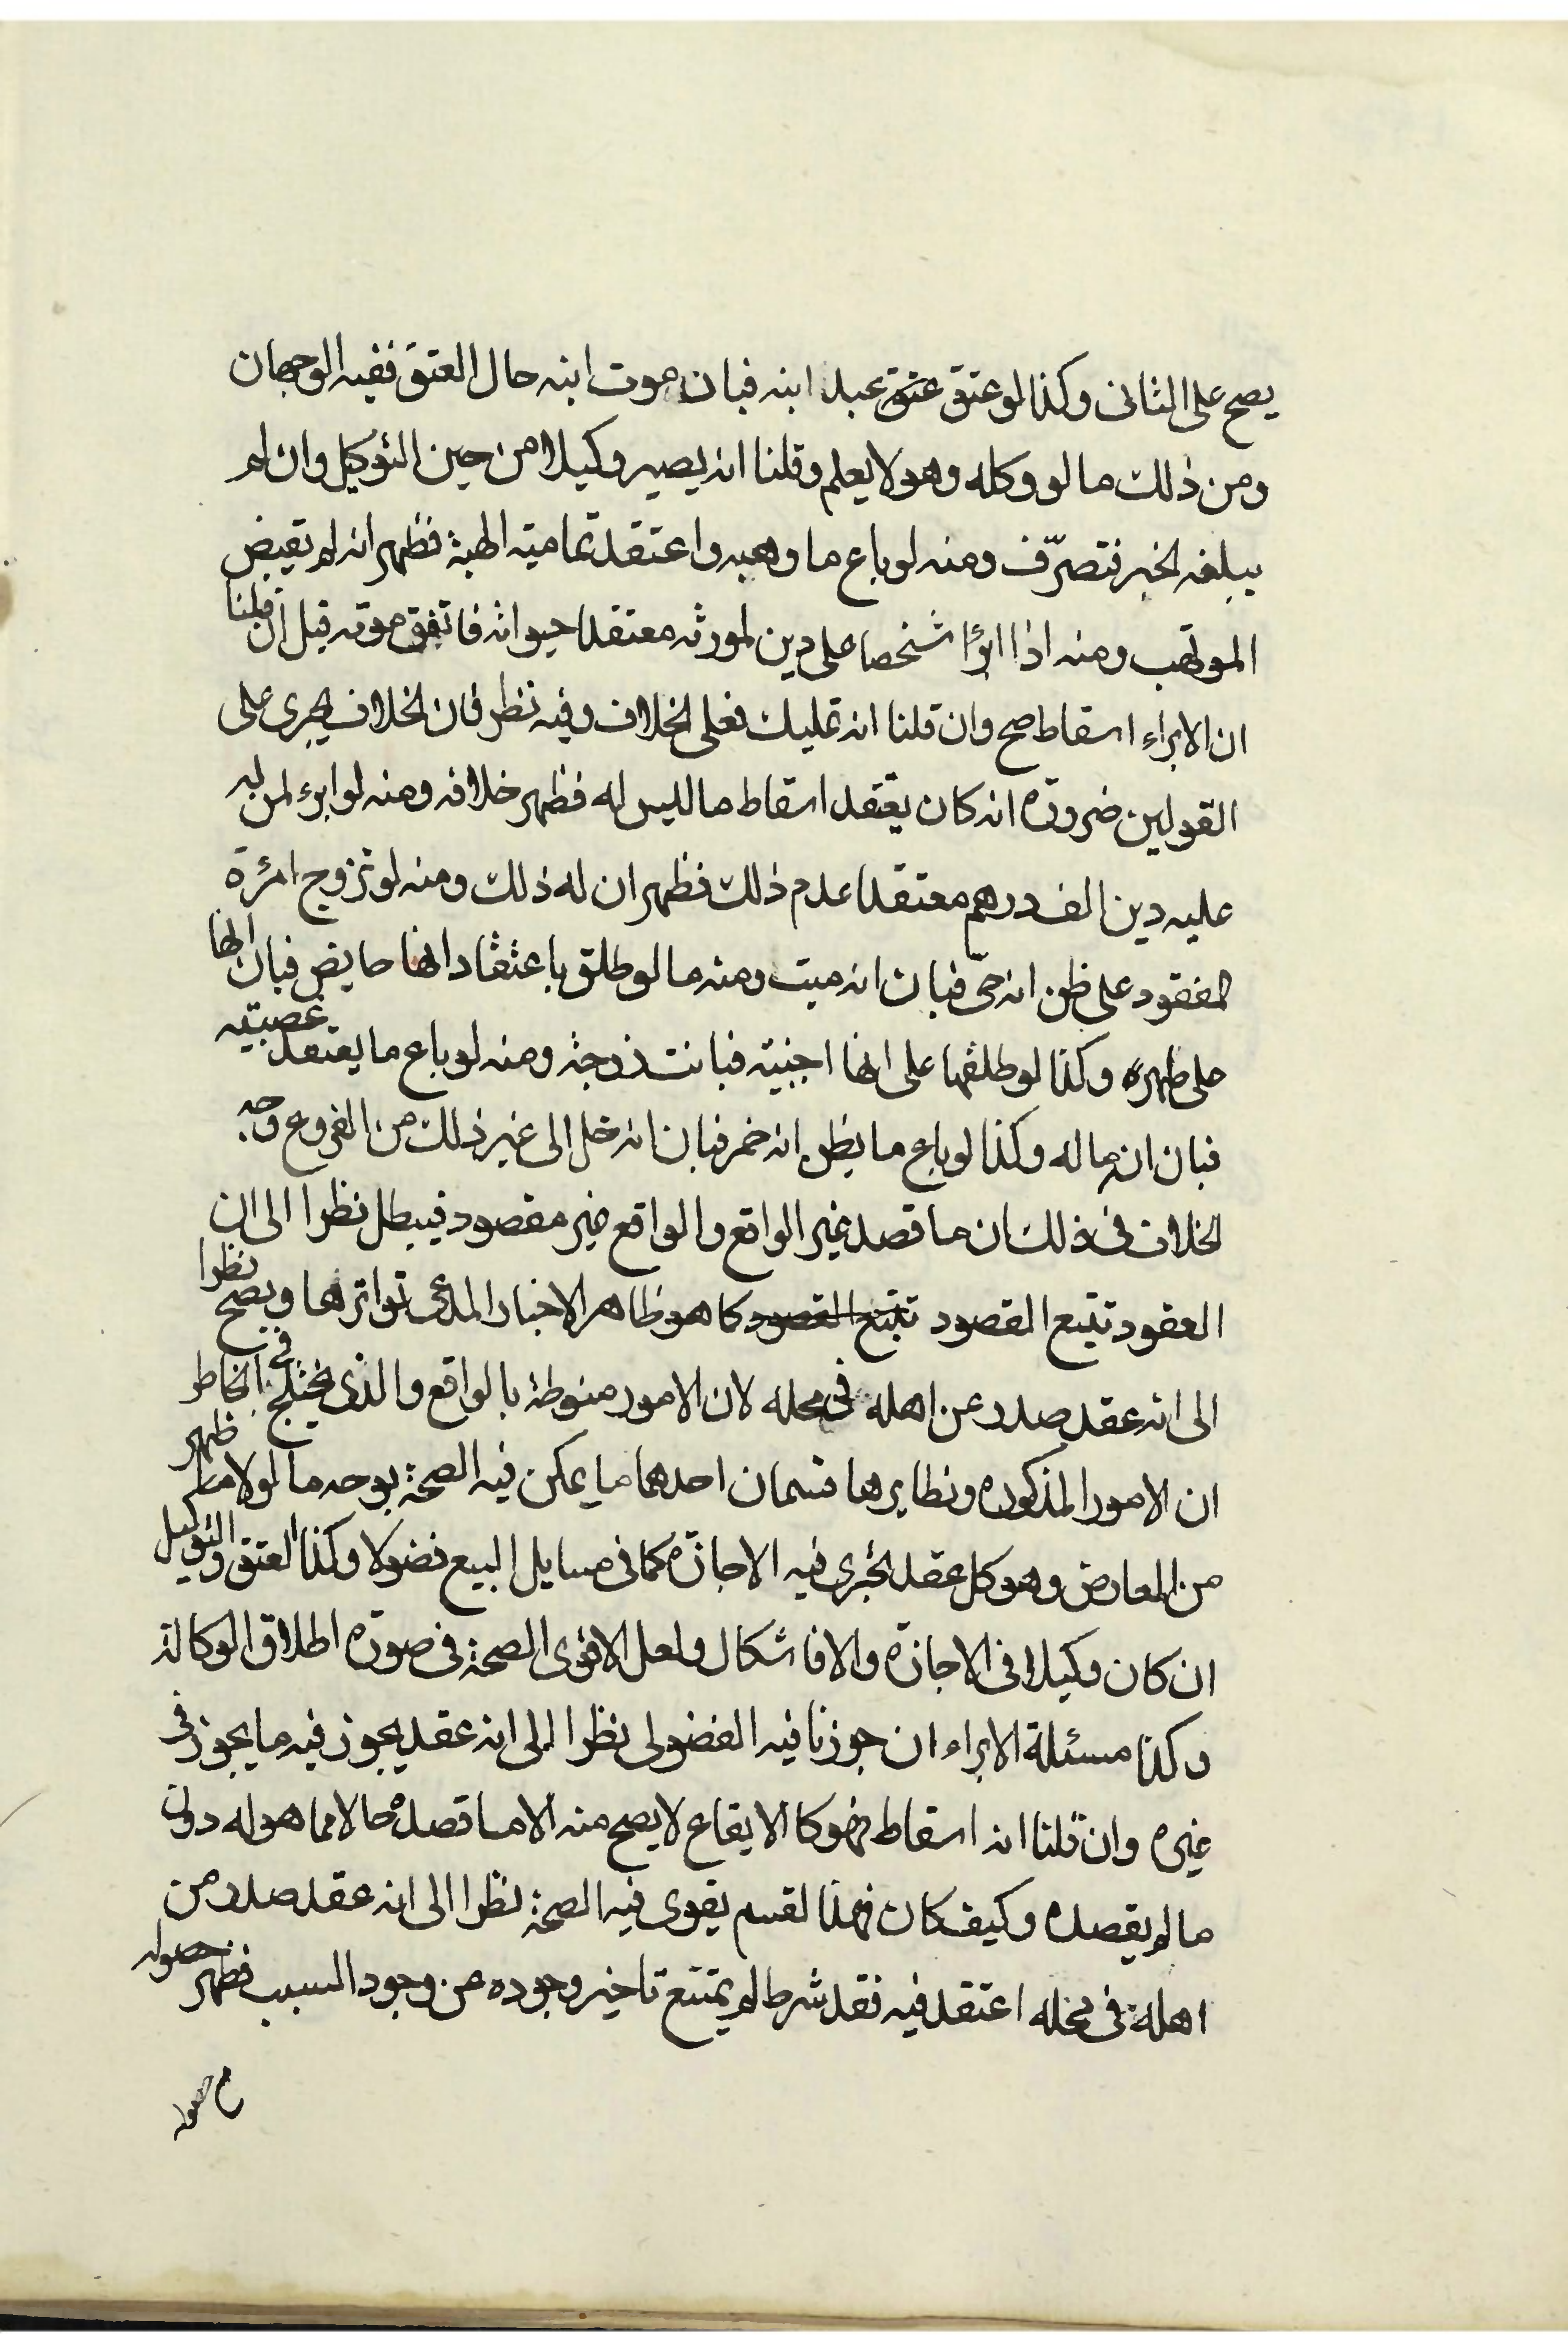 يصح على الثانى وكذا لو عتق عتق عبد ابنه فبان موت ابنه حال العتق ففيه الوجهان
ومن ذلك ما لو وكله وهو لا يعلم وقلنا انه يصير وكيلا من حين التوكيل وان لم
يبلغه الخبر فتصرّف ومنه لو باع ما وهبه واعتقد تمامية الهبة فظهر انه لم يقبض
الموتهب ومنه اذا ابرا شخصا على دين لمورثه معتقدا حيواته فاتفق موته قبل ان قلنا
ان الابراء اسقاط صح وان قلنا انه تمليك فعلى الخلاف وفيه نظر فان الخلاف يجرى على
القولين ضرورة انه كان يعتقد اسقاط ما ليس له فظهر خلافه ومنه لو ابرء لمن ليه
عليه دين الف درهم معتقدا عدم ذلك فظهر ان له ذلك ومنه لو تزوج امرئة
المفقود على ظن انه حىّ فبان انه ميت ومنه ما لو طلق باعتقاد انها حايض فبان انها
على طهره وكذا لو طلقها على انها اجنبية فبانت زوجته ومنه لو باع ما يعتقد غصبيته
فبان ان ماله وكذا لو باع ما يظن انه خمر فبان انه خل الى غير ذلك من الفروع وجه
الخلاف فى ذلك ان ما قصد غير الواقع والواقع غير مقصود فيبطل نظرا الى ان
العقود تتبع القصود تتبع القصود كما هو ظاهر الاخبار المدعى تواترها ويصح نظرا
الى انه عقد صدر عن اهله فى محله لان الامور منوطة بالواقع والذى يختلج فى الخاطر
ان الامور المذكوره ونظايرها قسمان احدهما ما يمكن فيه الصحة بوجه ما لولا ما ظهر
من المعارض وهو كل عقد يجرى فيه الاجازه كما فى مسايل البيع فضولا وكذا العتق والتوكيل
ان كان وكيلا فى الاجازه والا فاشكال ولعل الاقوى الصحة فى صورة اطلاق الوكالة
وكذا مسئلة الابراء ان جوزنا فيه الفضولى نظرا الى انه عقد يجوز فيه ما يجوز فى
غيره وان قلنا انه اسقاط فهو كا الايقاع لا يصح منه الا ما قصده حالا مما هو له دون
ما لم يقصده وكيف كان فهذا لقسم يقوى فيه الصحة نظرا الى انه عقد صدر من
اهله فى محله اعتقد فيه فقد شرط لم يمتنع تاخير وجوده عن وجود السبب فظهر حصوله